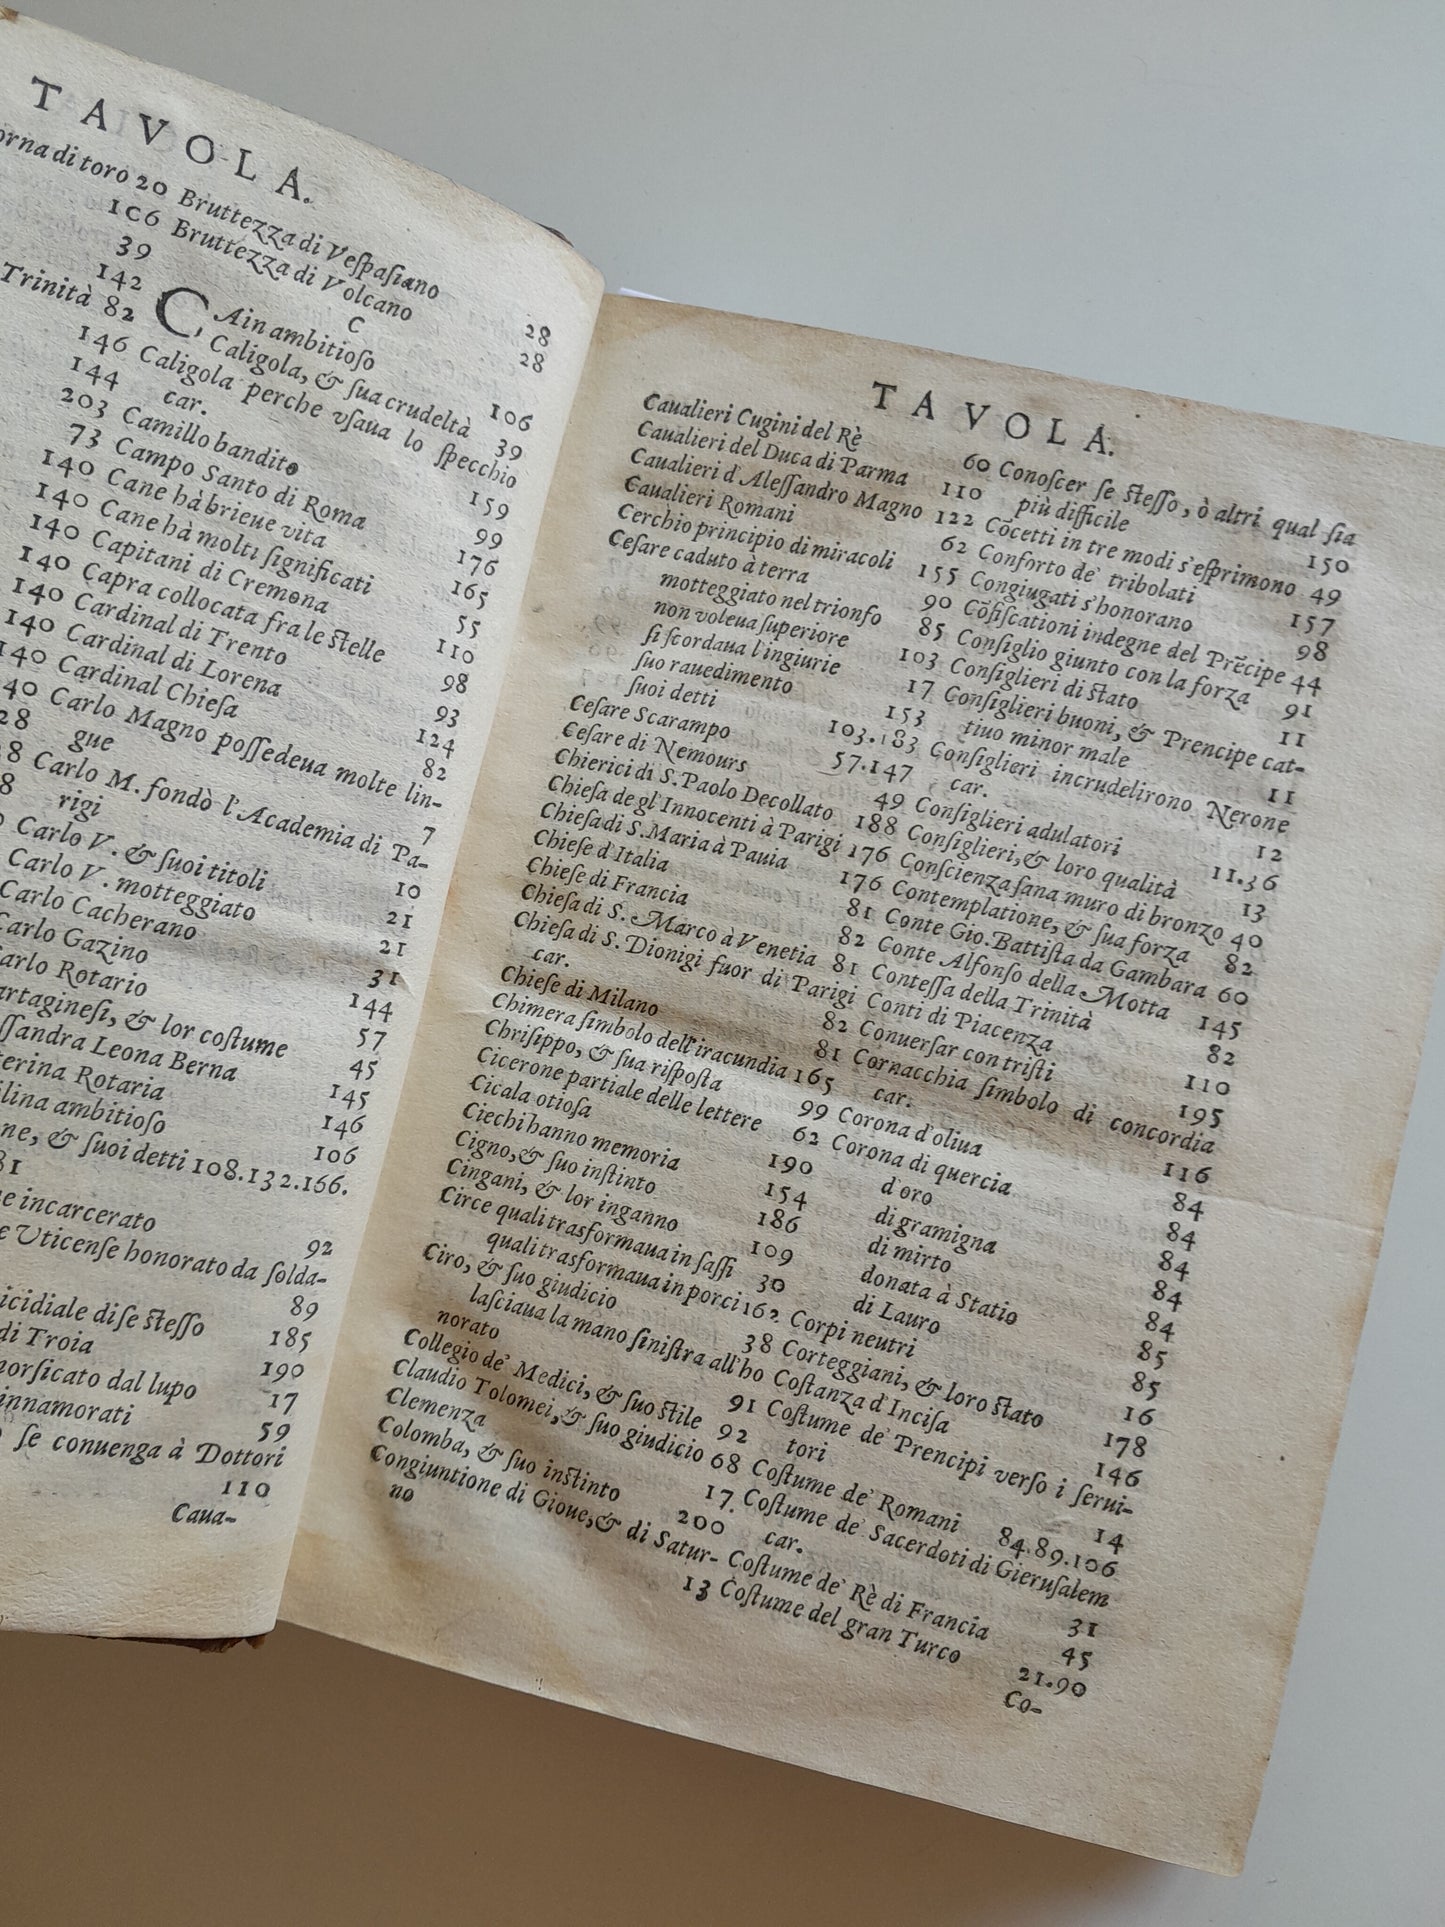 TAVOLA.
orna di toro 20
1C6
39
142
Trinità 82
146
144
203
73
140
140
140
140
140
140
140
140
28
Bruttezza di Veſpaſiano 28
Bruttezza di Volcano 28
C
CAin ambitioſo 106
Caligola, & ſua crudeltà 39
Caligola perche vſaua lo ſpecchio
car. 159
Camillo bandito 99
Campo Santo di Roma 176
Cane hà brieue vita 165
Cane hà molti ſignificati 55
Capitani di Cremona 110
Capra collocata fra le ſtelle 98
Cardinal di Trento 93
Cardinal di Lorena 124
Cardinal Chieſa 82
Carlo Magno poſſedeua molte lin-
gue 7
Carlo M. fondò l'Academia di Pa-
rigi 10
Carlo V. & ſuoi titoli 21
Carlo V. motteggiato 21
Carlo Cacherano 31
Carlo Gazino 144
Carlo Rotario 57
artagineſi, & lor coſtume 45
ſſandra Leona Berna 145
terina Rotaria 146
lina ambitioſo 106
ne, & ſuoi detti 108.132.166.
81
e incarcerato 92
e Uticenſe honorato da ſolda-
89
icidiale di ſe ſteſſo 185
di Troia 190
morſicato dal lupo 17
innamorati 59
ſe conuenga à Dottori
110
Caua-
TAVOLA.
Caualieri Cugini del Rè 60
Caualieri del Duca di Parma 110
Caualieri d'Aleſſandro Magno 122
Caualieri Romani 62
Cerchio principio di miracoli 155
Ceſare caduto à terra 90
motteggiato nel trionfo 85
non voleua ſuperiore 103
ſi ſcordaua l'ingiurie 17
ſuo rauedimento 153
ſuoi detti 103.183
Ceſare Scarampo 57.147
Ceſare di Nemours 49
Chierici di S. Paolo Decollato 188
Chieſa de gl'Innocenti à Parigi 176
Chieſa di S. Maria à Pauia 176
Chieſe d'Italia 81
Chieſe di Francia 82
Chieſa di S. Marco à Venetia 81
Chieſa di S. Dionigi fuor di Parigi
car. 82
Chieſe di Milano 81
Chimera ſimbolo dell'iracundia 165
Chriſippo, & ſua riſpoſta 99
Cicerone partiale delle lettere 62
Cicala otioſa 190
Ciechi hanno memoria 154
Cigno, & ſuo inſtinto 186
Cingani, & lor inganno 109
Circe quali trasformaua in ſaſſi 30
quali trasformaua in porci 162
Ciro, & ſuo giudicio 38
laſciaua la mano ſiniſtra all'ho
norato 91
Collegio de' Medici, & ſuo ſtile 92
Claudio Tolomei, & ſuo giudicio 68
Clemenza 17
Colomba, & ſuo inſtinto 200
Congiuntione di Gioue, & di Satur-
no 13
Conoſcer ſe ſteſſo, ò altri qual ſia
più difficile 150
Cõcetti in tre modi s'eſprimono 49
Conforto de' tribolati 157
Congiugati s'honorano 98
Cõfiſcationi indegne del Prẽcipe 44
Conſiglio giunto con la forza 91
Conſiglieri di ſtato 11
Conſiglieri buoni, & Prencipe cat-
tiuo minor male 11
Conſiglieri incrudelirono Nerone
car. 12
Conſiglieri adulatori 11.36
Conſiglieri, & loro qualità 13
Conſcienza ſana muro di bronzo 40
Contemplatione, & ſua forza 82
Conte Gio. Battiſta da Gambara 60
Conte Alfonſo della Motta 145
Conteſſa della Trinità 82
Conti di Piacenza 110
Conuerſar con triſti 195
Cornacchia ſimbolo di concordia
car. 116
Corona d'oliua 84
Corona di quercia 84
d'oro 84
di gramigna 84
di mirto 84
donata à Statio 85
di Lauro 85
Corpi neutri 16
Corteggiani, & loro ſtato 178
Coſtanza d'Inciſa 146
Coſtume de' Prencipi verſo i ſerui-
tori 14
Coſtume de' Romani 84.89.106
Coſtume de' Sacerdoti di Gieruſalem
car. 31
Coſtume de' Rè di Francia 45
Coſtume del gran Turco 21.90
Co-